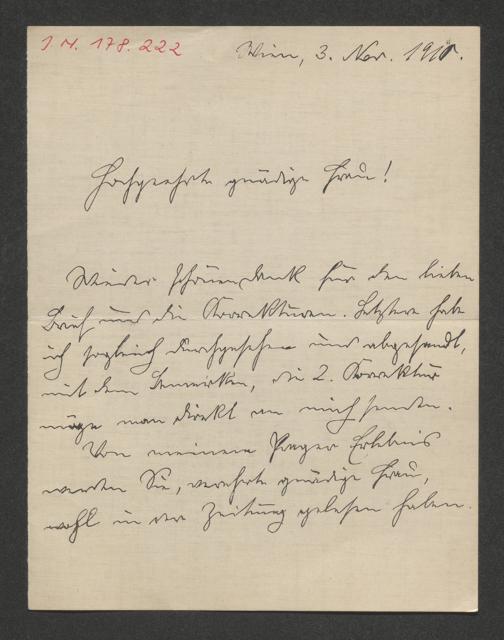 J. N. 178.222
Wien, 3. Nov. 1910.
Hochgeehrte gnädige Frau!
Wieder schönen Dank für den lieben
Brief und die Korrekturen. Letztere habe
ich sogleich durchgesehen und abgesandt,
mit dem Bemerken, die 2. Korrektur
möge man direkt an mich senden.
Von meinem Prager Erlebnis
werden Sie, verehrte gnädige Frau,
wohl in der Zeitung gelesen haben.